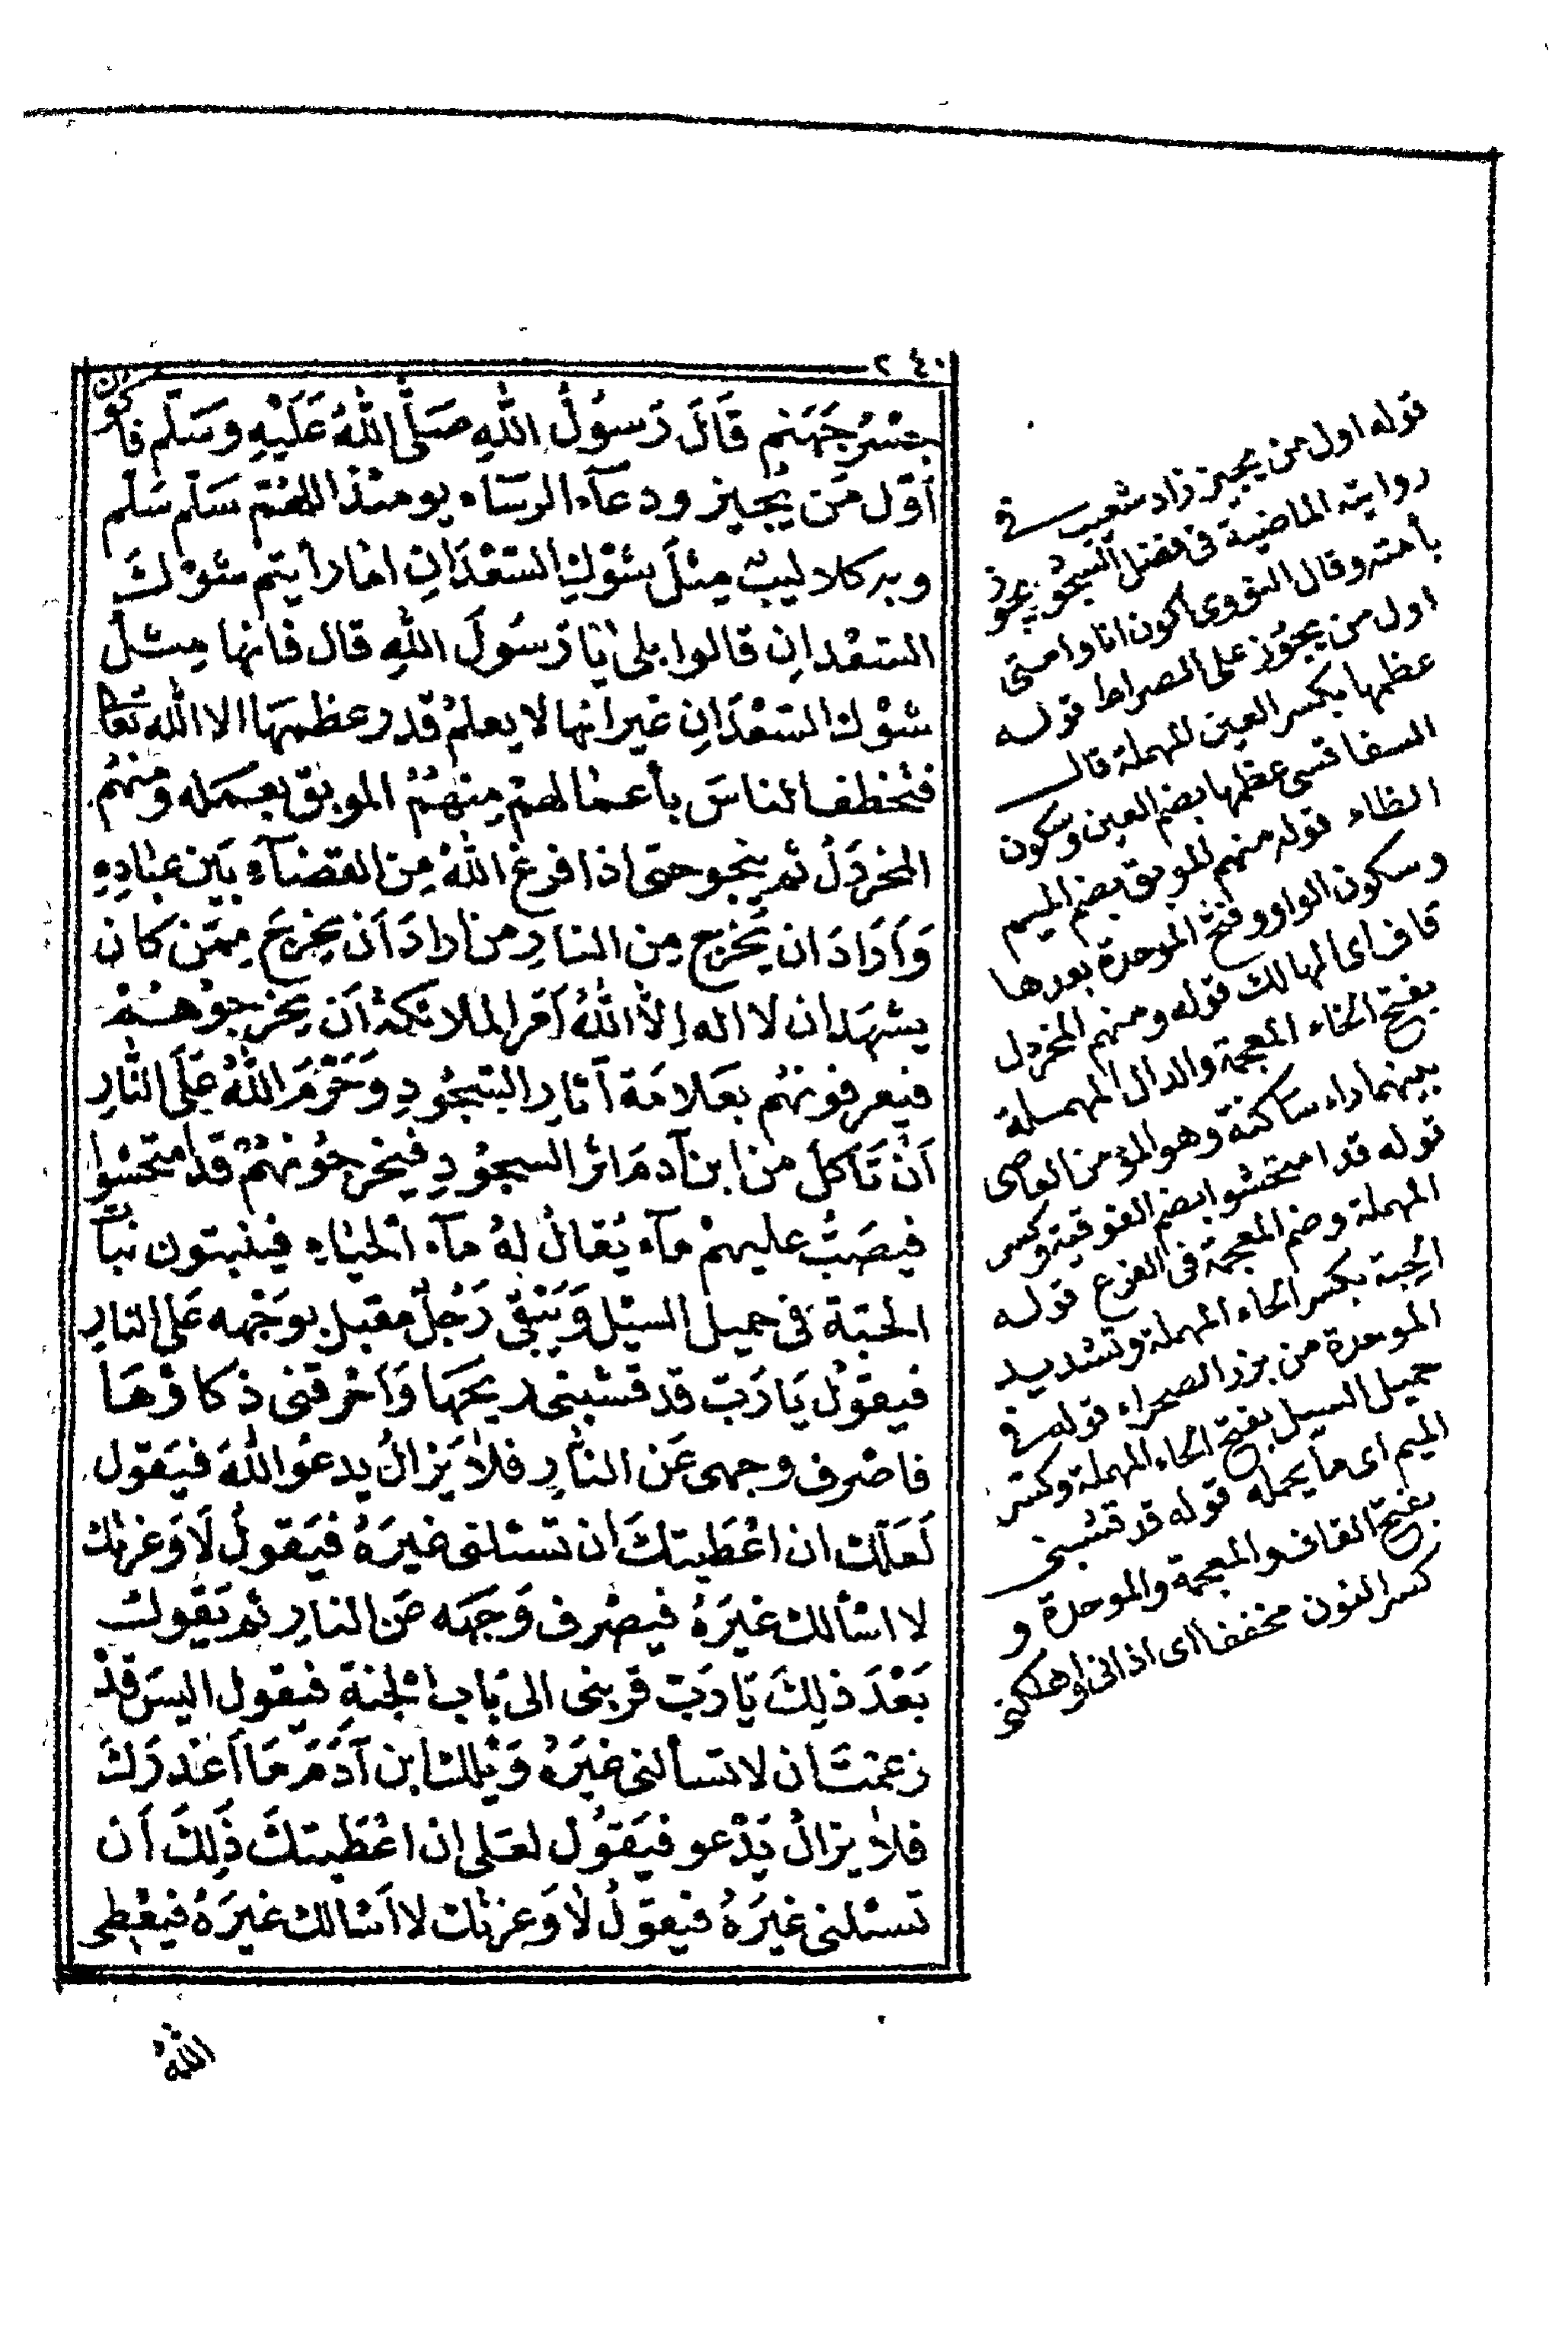 ٢٤٠
جسْرُ جَهَنم قَالَ رَسوُلُ اللهِ صَلَّى اللهُ عَلَيْهِ وَسَلّم فاكون
أوّل مَن يُجيز ودعآء الرسَاء يومئذ اللهُتم سَلّم سَلّم
وبه كلاليبُ مِثلَ شَوْكِ السّعْدَانِ اما رأيتم شوْكَ
السّعْدانِ قالوا بلى يَا رَسُولَ اللهِ قال فانها مِثلُ
شوْك السّعْدَانِ غير انها لا يعلمُ قدر عظمهَا الا الله تعالى
فتخطف الناسَ بأعمالهمْ مِنهُمُ الموبق بعمَله ومنهُم
المخردَلُ ثم ينجو حتى اذا فرغ اللهُ مِن القضآءِ بَين عبَادِهِ
وَاَرَادَ ان يخرج مِن النارِ من اراد اَن يخرجَ مِمّن كان
يشهَد ان لا اله اِلّا اللهُ اَمَر الملائكةَ اَن يخرجوُهُمْ
فيَعرفونهُم بعَلامَة آثارِ السّجُودِ وَحَرّمَ اللهُ عَلَى النّارِ
اَنْ تَأكل من ابن آدمَ اثر السجوُدِ فيخرجوُنهُمْ قد امتحشوا
فيصَبُّ عليهمْ مآء يُقالُ لهُ مآء الحيَاهِ فينبتون نبآت
الحبّة فى حميل السيْل وَيَبْقى رَجُلٌ مقبل بوَجْهه عَلى النارِ
فيقوُل يَا رَبّ قد قشبنى ريحهَا وَاَحرقنى ذكاؤهَا
فاصْرف وجهى عَن النّارِ فلَا يَزالُ يدعوُ اللهَ فيَقول
لَعَلّك ان اعْطَيتكَ ان تسئلنى غيرَهُ فيَقولُ لَا وَعزتك
لا اسْألك غيَرهُ فيصْرف وَجهَه عَن النارِ ثم يَقول
بَعْدَ ذلِكَ يَا رَبّ قربنى الى بَاب الجنةِ فيَقول اليسَ قدْ
زعمْتَ ان لا تسألنى غيَرهُ وَيْلك ابن آدَمَ مَا اَغْدرَكَ
فلا يزالُ يَدْعو فيَقوُل لعَلى اِن اعْطَيتكَ ذَلِكَ اَن
تسئلنى غيَرهُ فيقوُلُ لَا وَعزتك لا اَسْالك غيَرهُ فيعْطى
الله
قوله اول من يجيز زاد شعيب فى
روايته الماضية فى فضل السجود يجوز
بأمته وقال النووى اكون انا وامتى
اول من يجوز على الصراط قوله
عظمها بكسر العين المهملة قال
السفاقسى عظمها بضم العين وسكون
الظاء قوله منهم الموبق بضم الميم
وسكون الواو وفتح الموحدة بعدها
قاف اى الهالك قوله ومنهم المخردل
بفتح الخاء المعجمة والدال المهملة
بينهما راء ساكنة وهو المؤمن العاصى
قوله قد امتحشوا بضم الفوقية وكسر
المهملة وضم المعجمة فى الفرع قوله
الحبة بكسر الحاء المهملة وتشديد
الموحدة من بزر الصحراء قوله فى
حميل السيل بفتح الحاء المهملة وكسر
الميم اى ما يحمله قوله قد قشبنى
بفتح القاف والمعجمة والموحدة و
كسر النون مخففا اى اذانى واهلكنى